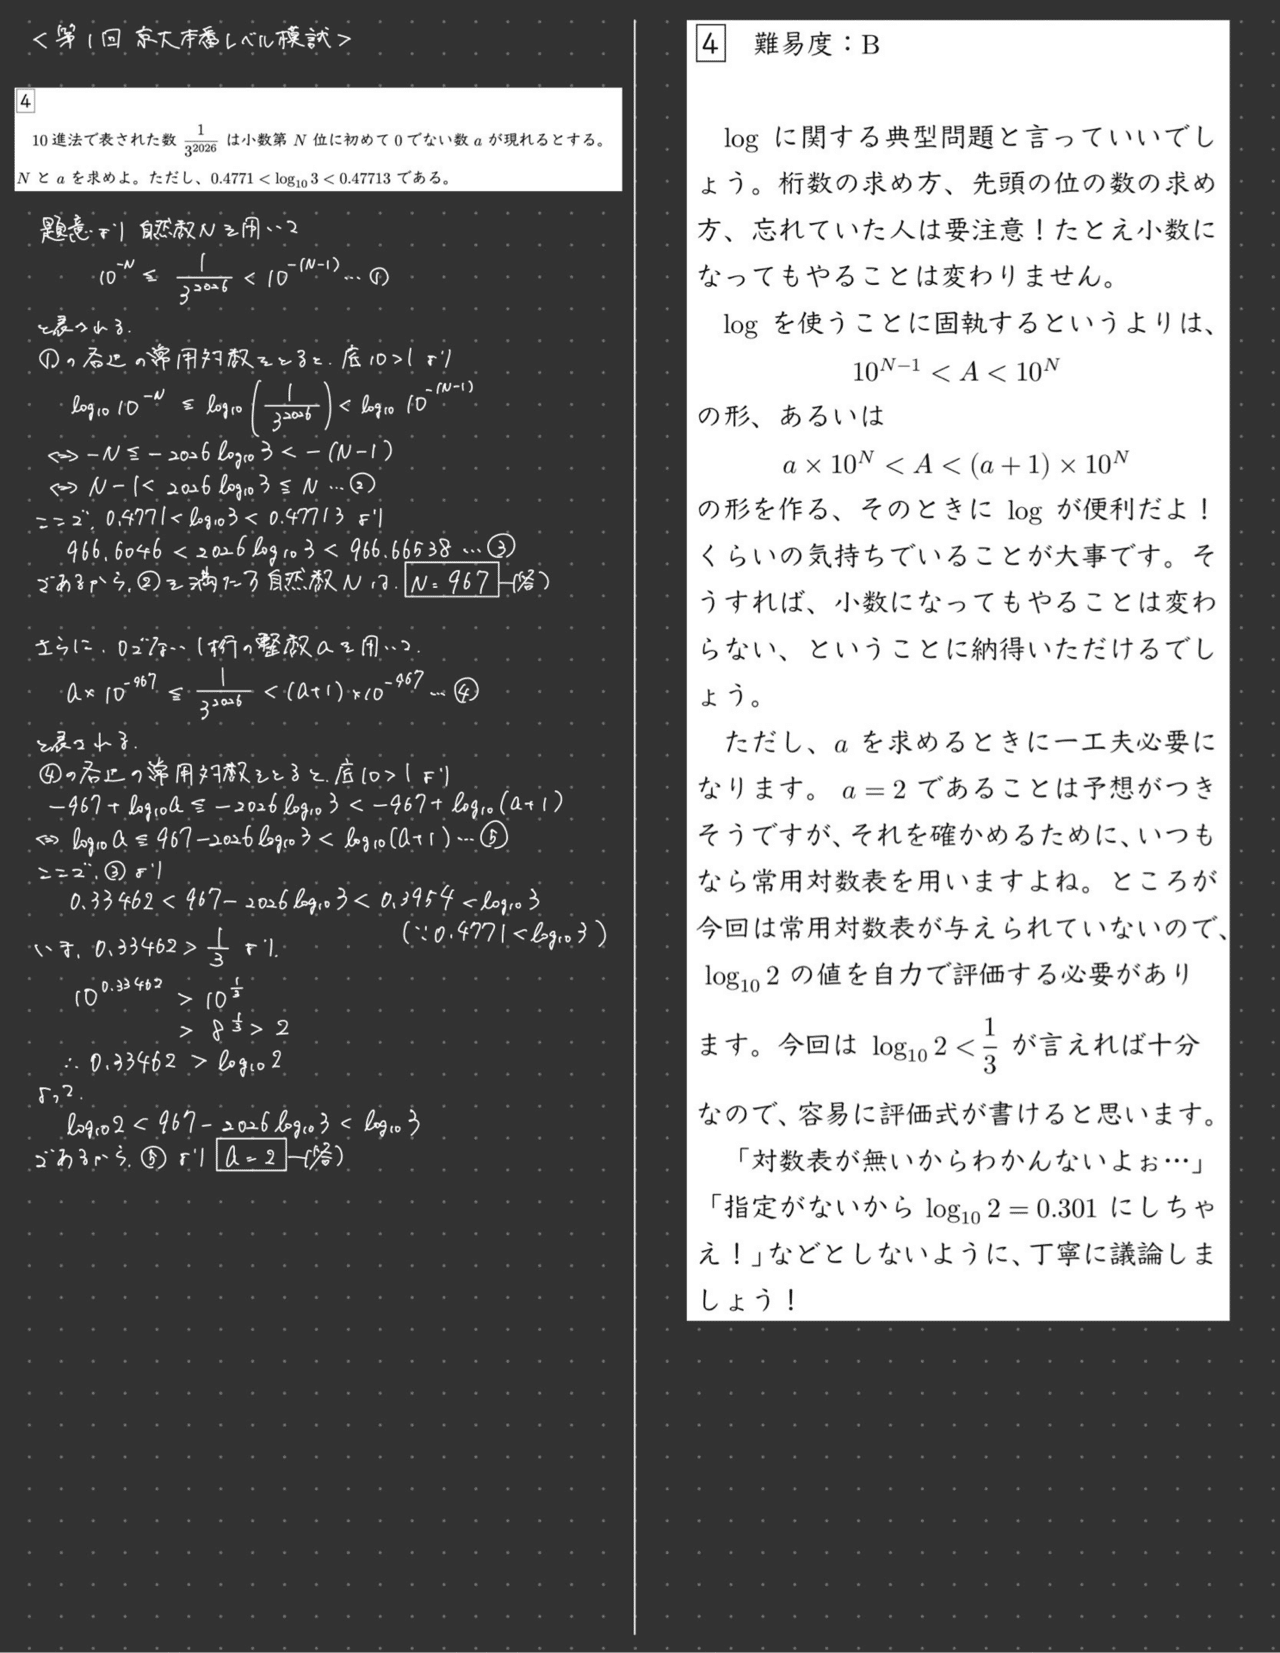 <第1回 京大本番レベル模試>
4
10進法で表された数 1/3^2026 は小数第 N 位に初めて0でない数 a が現れるとする。
N と a を求めよ。ただし、0.4771 < log₁₀ 3 < 0.47713 である。
題意より 自然数Nを用いて
10^-N ≦ 1/3^2026 < 10^-(N-1) … ①
と表される.
①の各辺の常用対数をとると, 底10>1より
log₁₀ 10^-N ≦ log₁₀ (1/3^2026) < log₁₀ 10^-(N-1)
⇔ -N ≦ -2026 log₁₀ 3 < -(N-1)
⇔ N-1 < 2026 log₁₀ 3 ≦ N … ②
ここで, 0.4771 < log₁₀ 3 < 0.47713 より
966.6046 < 2026 log₁₀ 3 < 966.66538 … ③
であるから, ②を満たす自然数Nは, N = 967 —(答)
さらに, 0でない1桁の整数aを用いて,
a × 10^-967 ≦ 1/3^2026 < (a+1) × 10^-967 … ④
と表される.
④の各辺の常用対数をとると, 底10>1より
-967 + log₁₀ a ≦ -2026 log₁₀ 3 < -967 + log₁₀ (a+1)
⇔ log₁₀ a ≦ 967 - 2026 log₁₀ 3 < log₁₀ (a+1) … ⑤
ここで, ③より
0.33462 < 967 - 2026 log₁₀ 3 < 0.3954 < log₁₀ 3
(∵ 0.4771 < log₁₀ 3)
いま, 0.33462 > 1/3 より,
10^0.33462 > 10^1/3
> 8^1/3 > 2
∴ 0.33462 > log₁₀ 2
よって,
log₁₀ 2 < 967 - 2026 log₁₀ 3 < log₁₀ 3
であるから, ⑤より a = 2 —(答)
4 難易度：B
log に関する典型問題と言っていいでし
ょう。桁数の求め方、先頭の位の数の求め
方、忘れていた人は要注意！たとえ小数に
なってもやることは変わりません。
log を使うことに固執するというよりは、
10^N-1 < A < 10^N
の形、あるいは
a × 10^N < A < (a + 1) × 10^N
の形を作る、そのときに log が便利だよ！
くらいの気持ちでいることが大事です。そ
うすれば、小数になってもやることは変わ
らない、ということに納得いただけるでし
ょう。
ただし、a を求めるときに一工夫必要に
なります。a = 2 であることは予想がつき
そうですが、それを確かめるために、いつも
なら常用対数表を用いますよね。ところが
今回は常用対数表が与えられていないので、
log₁₀ 2 の値を自力で評価する必要があり
ます。今回は log₁₀ 2 < 1/3 が言えれば十分
なので、容易に評価式が書けると思います。
「対数表が無いからわかんないよぉ…」
「指定がないから log₁₀ 2 = 0.301 にしちゃ
え！」などとしないように、丁寧に議論しま
しょう！